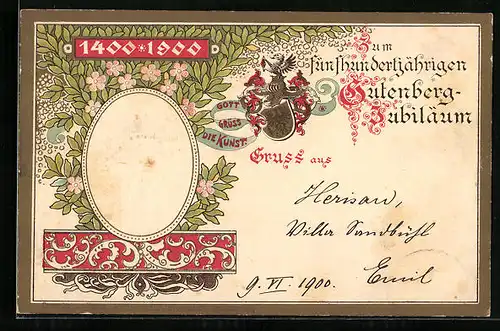 1400 * 1900
Zum
fünfhundertjährigen
Gutenberg-
Jubiläum
GOTT
GRÜSS
DIE KUNST.
Gruss aus
Herisau,
Villa Sandbühl
9. VI. 1900.
Emil